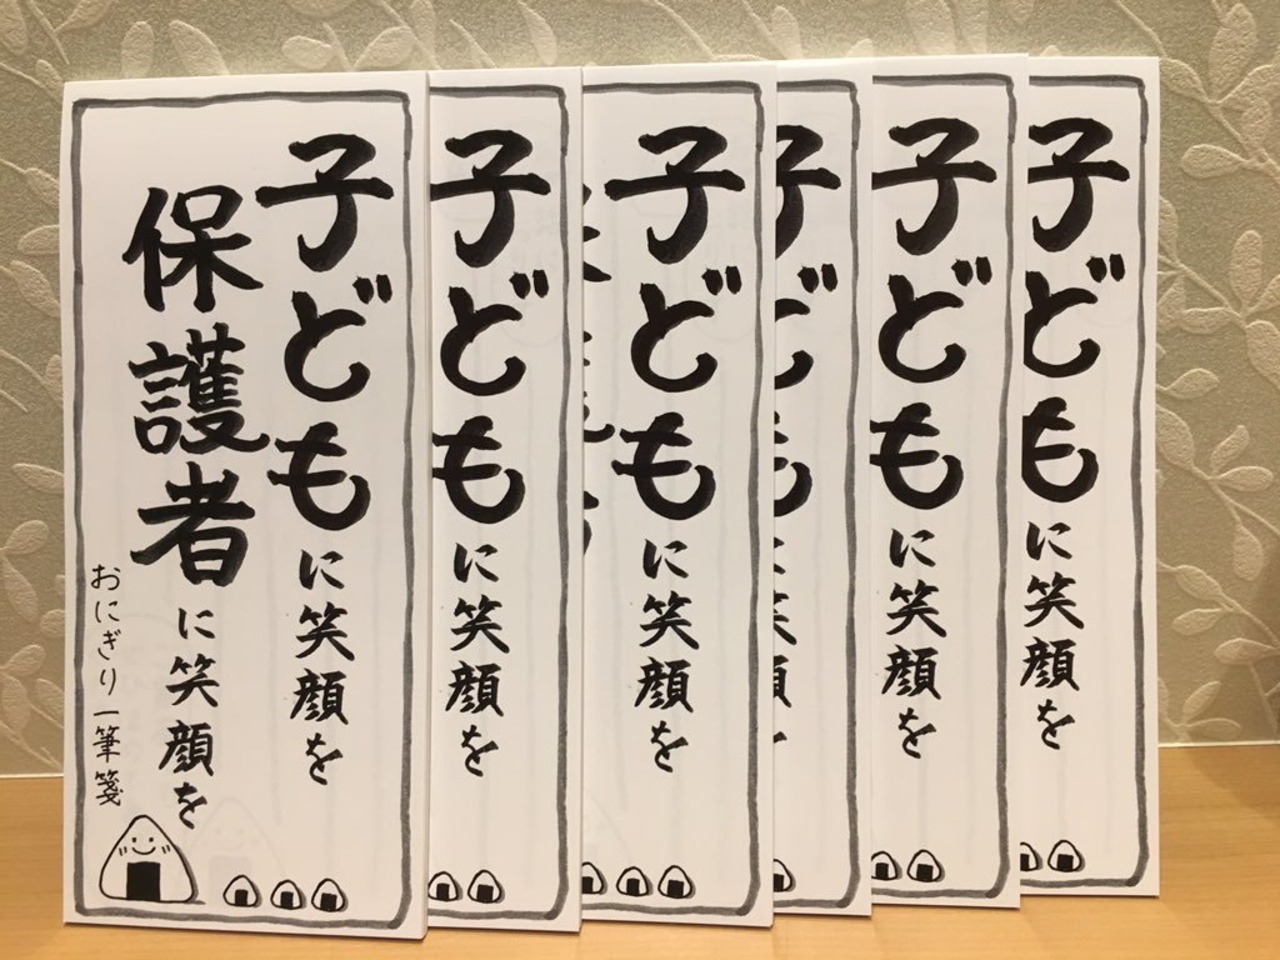 子どもに笑顔を
保護者に笑顔を
おにぎり一筆箋
子どもに笑顔を
子どもに笑顔を
子どもに笑顔を
子どもに笑顔を
子どもに笑顔を